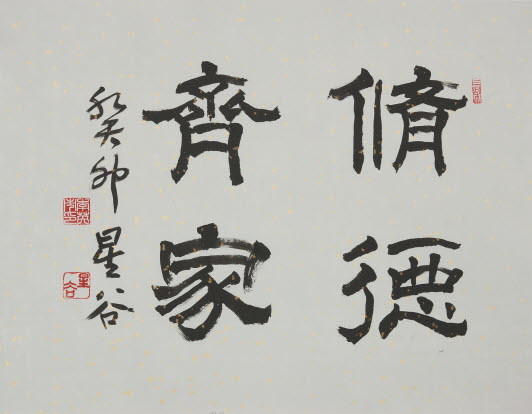 脩德
齊家
癸卯 星谷